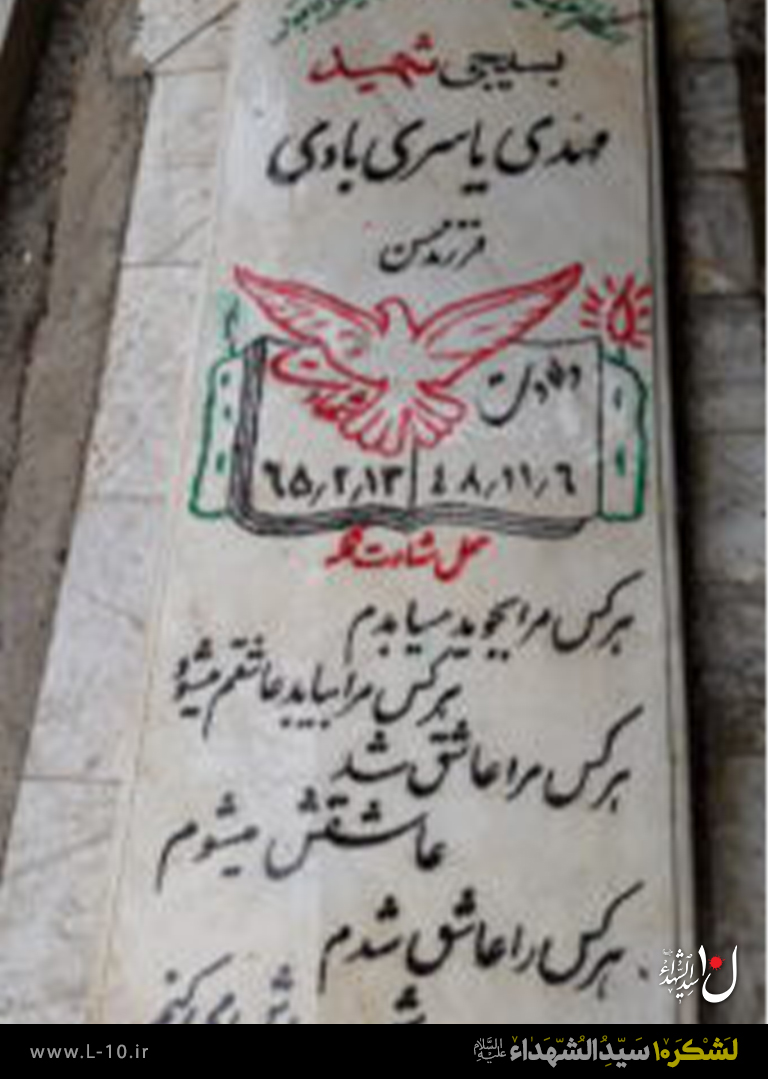 بسیجی شهید
مهدی یاسری بادی
فرزند محسن
ولادت شهادت
٤٨٫١١٫٦ ٦٥٫٢٫١٣
محل شهادت فکه
هرکس مرا بجوید میابدم
هرکس مرا بیابد عاشقم میشود
هرکس مرا عاشق شد
عاشقش میشوم
هرکس را عاشق شدم
لشکر۱۰ سیدالشهداء علیه‌السلام
www.L-10.ir